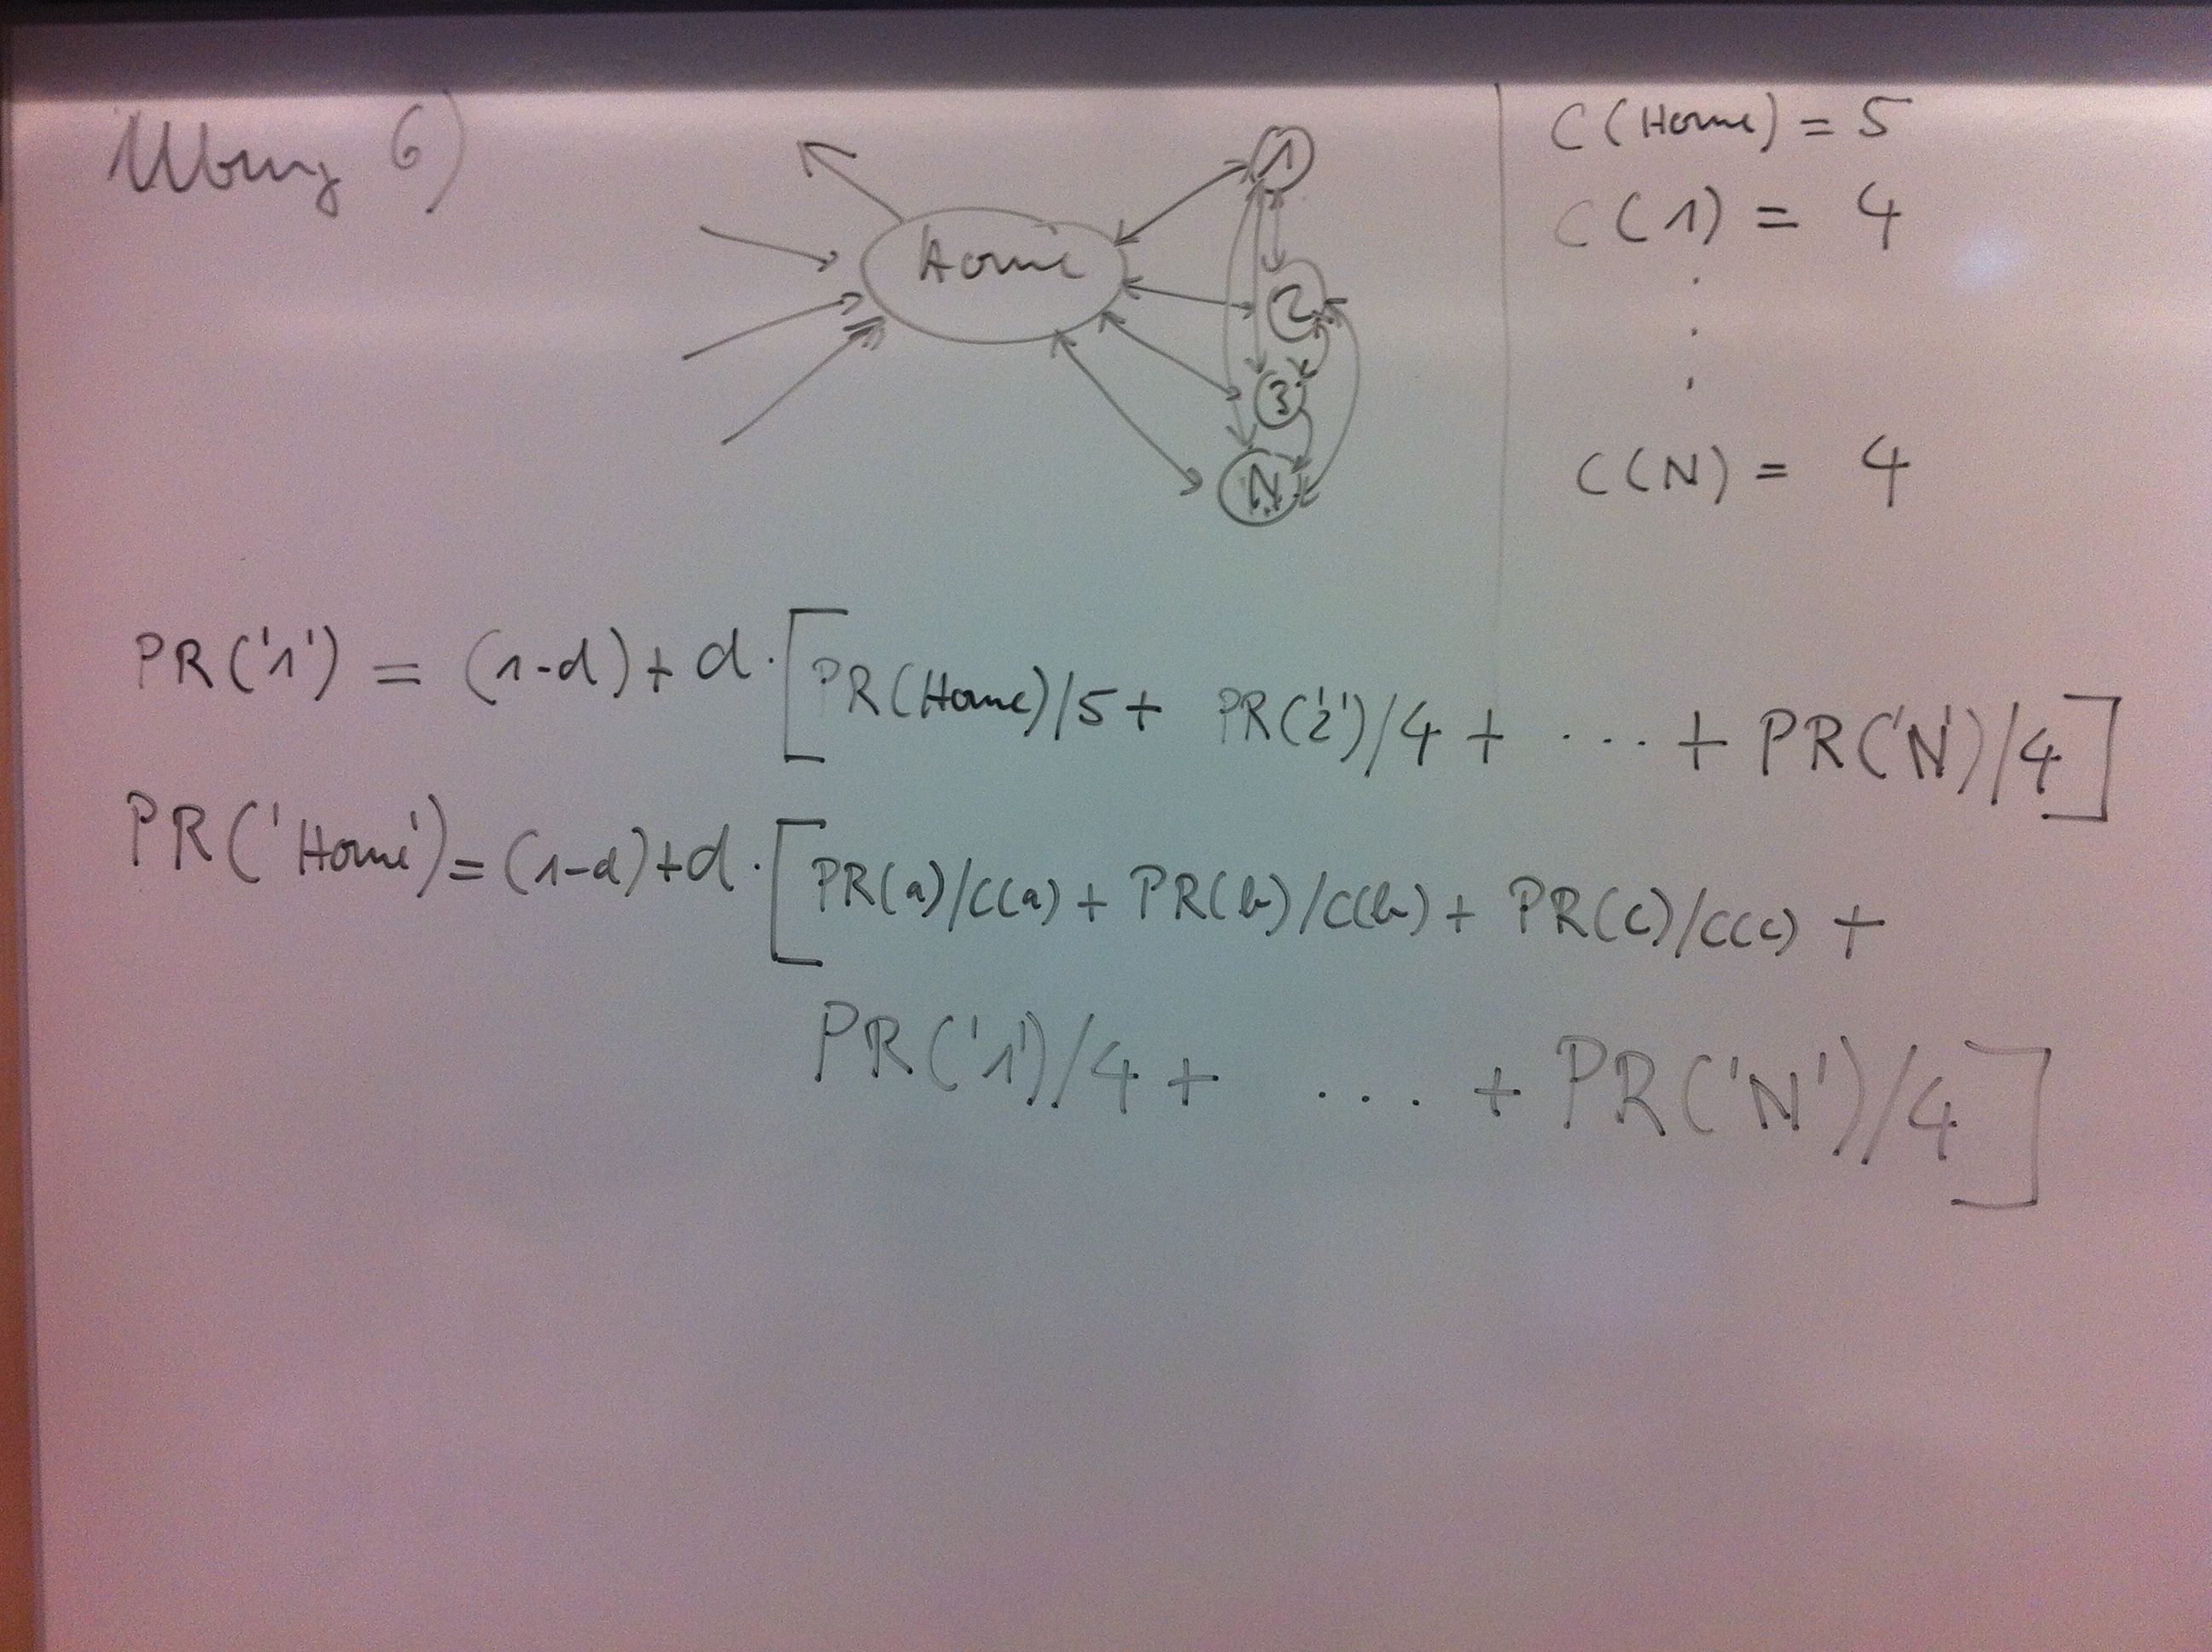 Übung 6)
Home
1
2
3
N
C(Home) = 5
C(1) = 4
⋮
C(N) = 4
PR('1') = (1-d) + d · [PR(Home)/5 + PR('2')/4 + ... + PR('N')/4]
PR('Home') = (1-d) + d · [PR(a)/C(a) + PR(b)/C(b) + PR(c)/C(c) +
PR('1')/4 + ... + PR('N')/4]